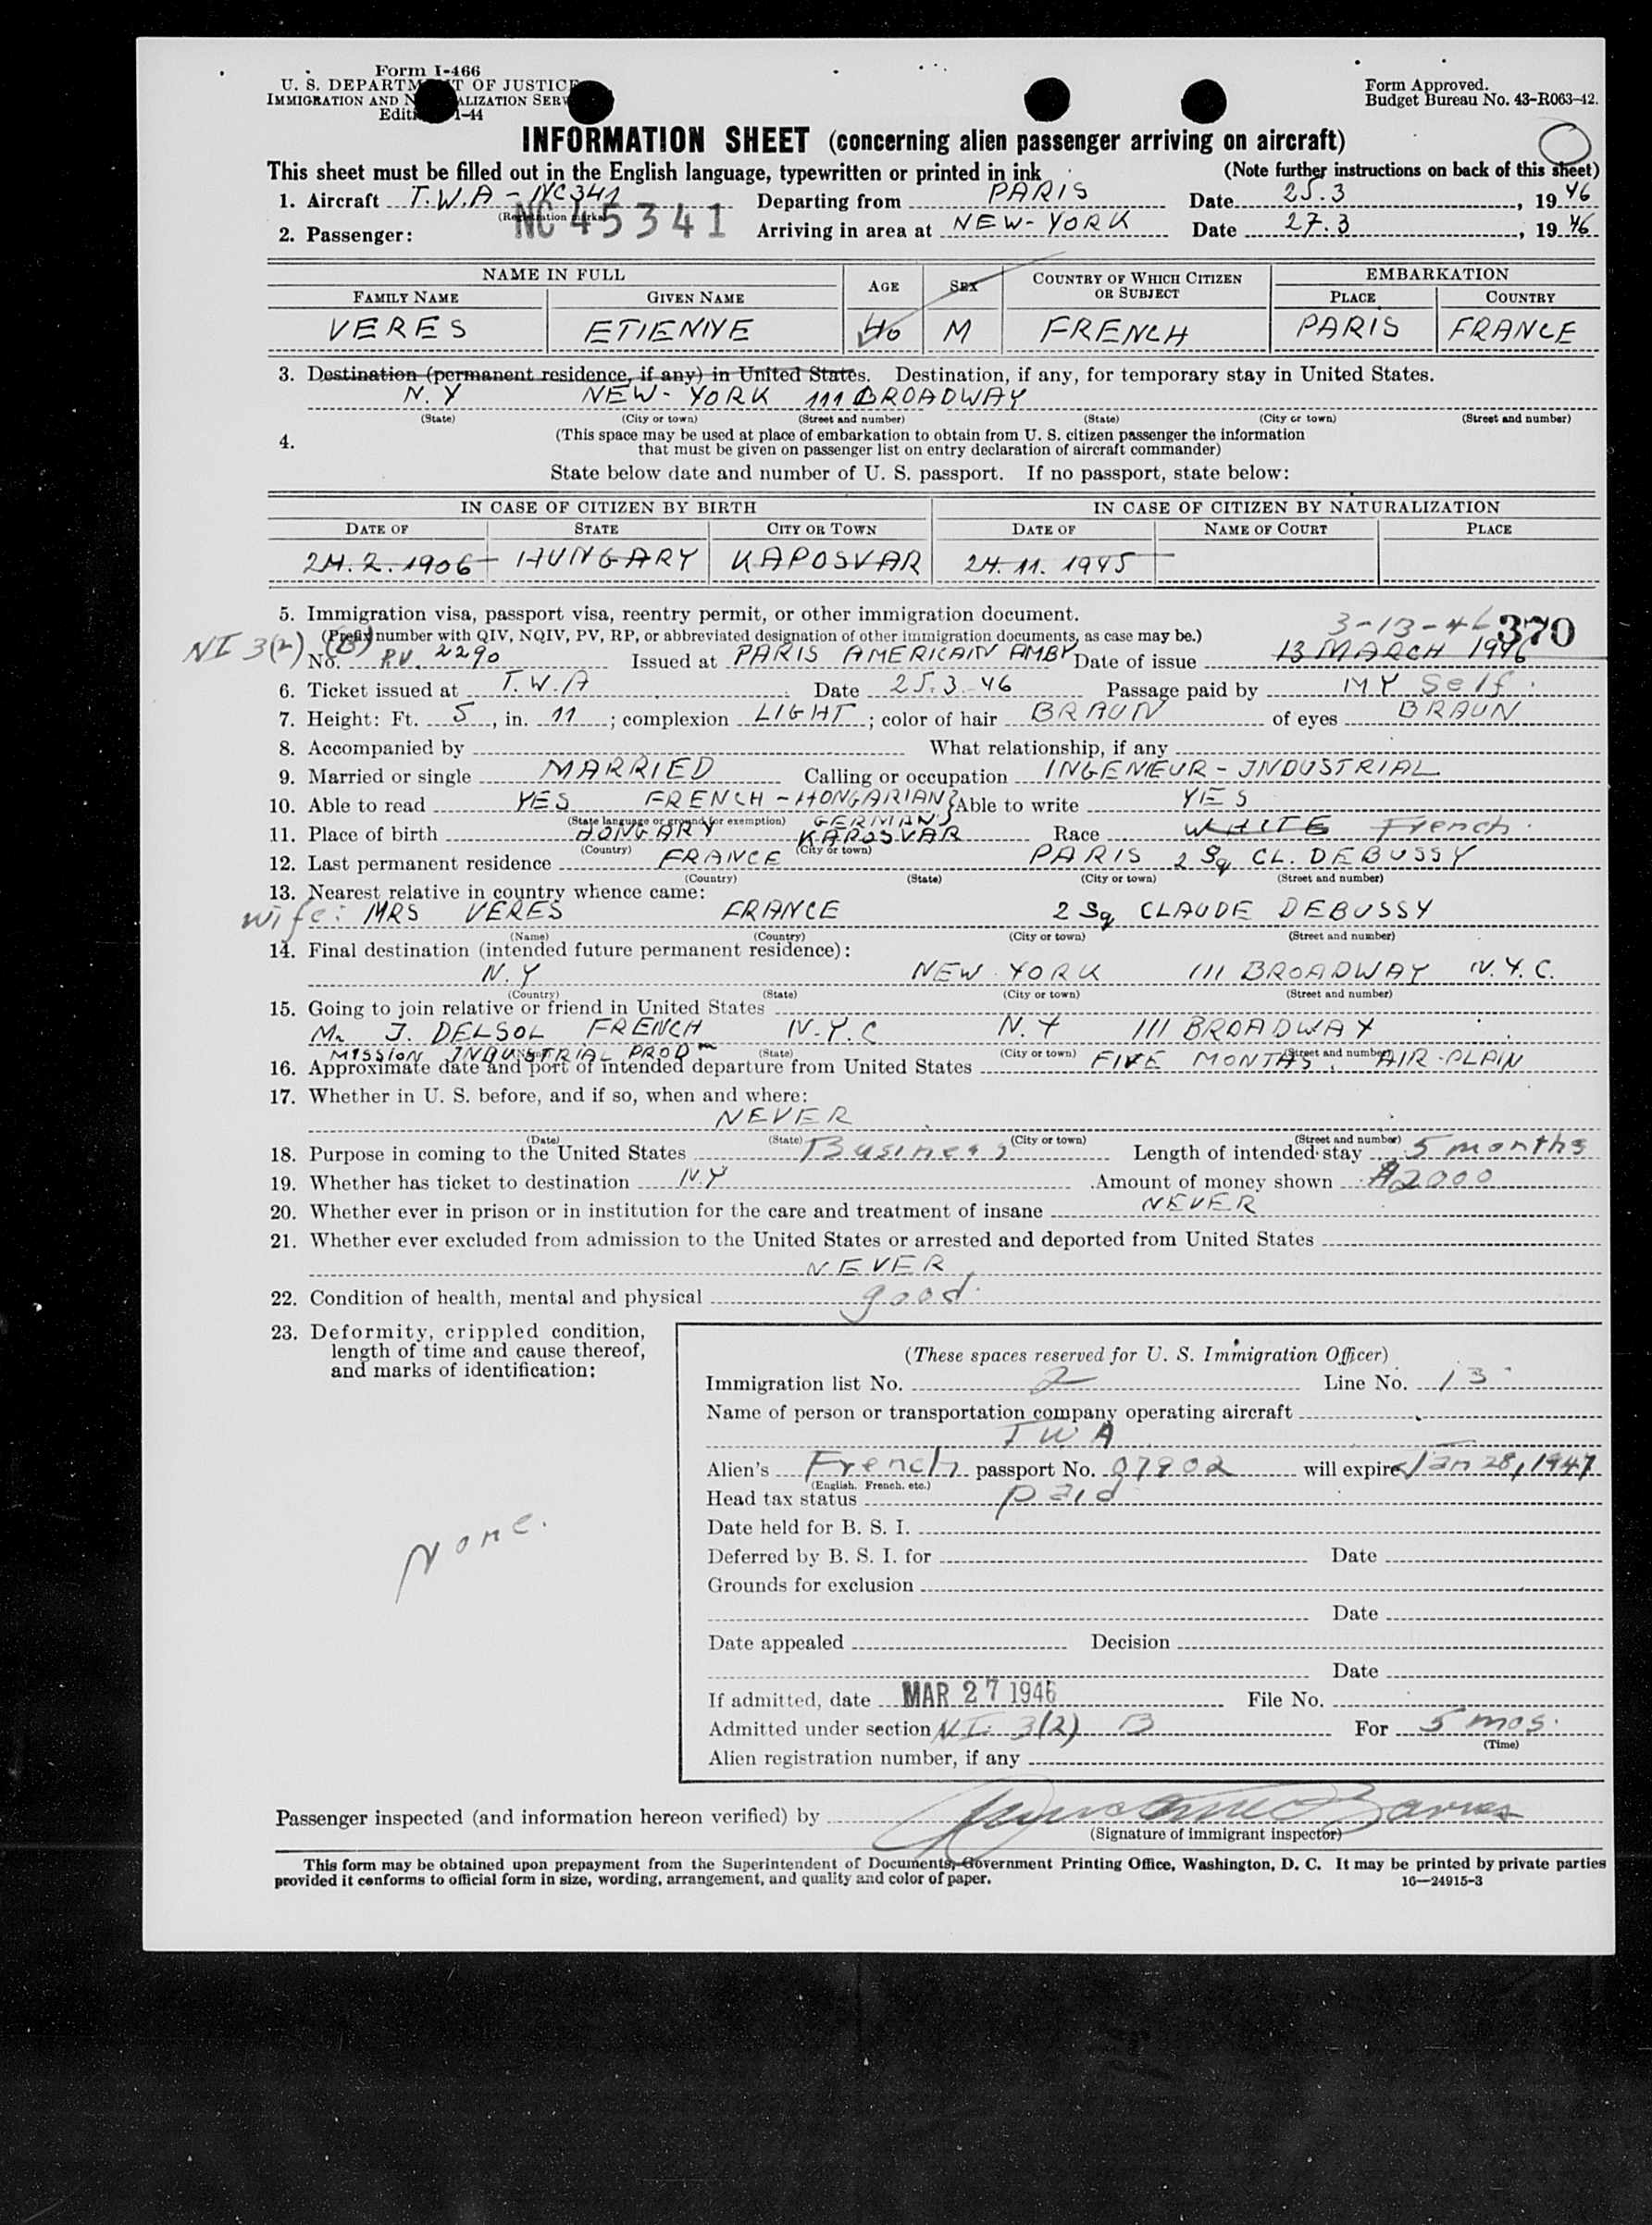 Form I-466
U. S. DEPARTMENT OF JUSTICE
IMMIGRATION AND NATURALIZATION SERV
Edit 1-44
Form Approved.
Budget Bureau No. 43-R063-42.
INFORMATION SHEET (concerning alien passenger arriving on aircraft)
This sheet must be filled out in the English language, typewritten or printed in ink (Note further instructions on back of this sheet)
1. Aircraft T.W.A - NC341 Departing from PARIS Date 25.3, 1946
(Registration marks) NC45341
2. Passenger: Arriving in area at NEW-YORK Date 27.3, 1946
NAME IN FULL AGE SEX COUNTRY OF WHICH CITIZEN OR SUBJECT EMBARKATION
FAMILY NAME GIVEN NAME PLACE COUNTRY
VERES ETIENNE 40 M FRENCH PARIS FRANCE
3. Destination (permanent residence, if any) in United States. Destination, if any, for temporary stay in United States.
N.Y NEW-YORK 111 BROADWAY
(State) (City or town) (Street and number) (State) (City or town) (Street and number)
4. (This space may be used at place of embarkation to obtain from U. S. citizen passenger the information
that must be given on passenger list on entry declaration of aircraft commander)
State below date and number of U. S. passport. If no passport, state below:
IN CASE OF CITIZEN BY BIRTH IN CASE OF CITIZEN BY NATURALIZATION
DATE OF STATE CITY OR TOWN DATE OF NAME OF COURT PLACE
24.2.1906 HUNGARY KAPOSVAR 24.11.1945
5. Immigration visa, passport visa, reentry permit, or other immigration document.
3-13-46 370
(Prefix number with QIV, NQIV, PV, RP, or abbreviated designation of other immigration documents, as case may be.)
NI 3(2) (B) No. P.V. 2290 Issued at PARIS AMERICAIN AMBY Date of issue 13 MARCH 1946
6. Ticket issued at T.W.A Date 25.3-46 Passage paid by MY Self
7. Height: Ft. 5, in. 11; complexion LIGHT; color of hair BRAUN of eyes BRAUN
8. Accompanied by What relationship, if any
9. Married or single MARRIED Calling or occupation INGENIEUR-INDUSTRIAL
10. Able to read YES FRENCH-HONGARIAN Able to write YES
(State language or ground for exemption) GERMAN
11. Place of birth HONGARY KAPOSVAR Race WHITE French
(Country) (City or town)
12. Last permanent residence FRANCE PARIS 2 Sq CL. DEBUSSY
(Country) (State) (City or town) (Street and number)
13. Nearest relative in country whence came:
wife: MRS VERES FRANCE 2 Sq CLAUDE DEBUSSY
(Name) (Country) (City or town) (Street and number)
14. Final destination (intended future permanent residence):
N.Y NEW YORK 111 BROADWAY N.Y.C.
(Country) (State) (City or town) (Street and number)
15. Going to join relative or friend in United States
Mr J. DELSOL FRENCH N.Y.C N.Y 111 BROADWAY
MISSION INDUSTRIAL PROD (State) (City or town) (Street and number)
16. Approximate date and port of intended departure from United States FIVE MONTHS, AIR-PLAIN
17. Whether in U. S. before, and if so, when and where:
NEVER
(Date) (State) (City or town) (Street and number)
18. Purpose in coming to the United States Business Length of intended stay 5 months
19. Whether has ticket to destination N.Y Amount of money shown $2000
20. Whether ever in prison or in institution for the care and treatment of insane NEVER
21. Whether ever excluded from admission to the United States or arrested and deported from United States
NEVER
22. Condition of health, mental and physical good
23. Deformity, crippled condition,
length of time and cause thereof,
and marks of identification:
None.
(These spaces reserved for U. S. Immigration Officer)
Immigration list No. 2 Line No. 13
Name of person or transportation company operating aircraft
TWA
Alien's French passport No. 07902 will expire Jan 28, 1947
(English, French, etc.)
Head tax status paid
Date held for B. S. I.
Deferred by B. S. I. for Date
Grounds for exclusion
Date
Date appealed Decision
Date
If admitted, date MAR 27 1946 File No.
Admitted under section N.I. 3(2) B For 5 mos.
(Time)
Alien registration number, if any
Passenger inspected (and information hereon verified) by
(Signature of immigrant inspector)
This form may be obtained upon prepayment from the Superintendent of Documents, Government Printing Office, Washington, D. C. It may be printed by private parties
provided it conforms to official form in size, wording, arrangement, and quality and color of paper. 16—24915-3